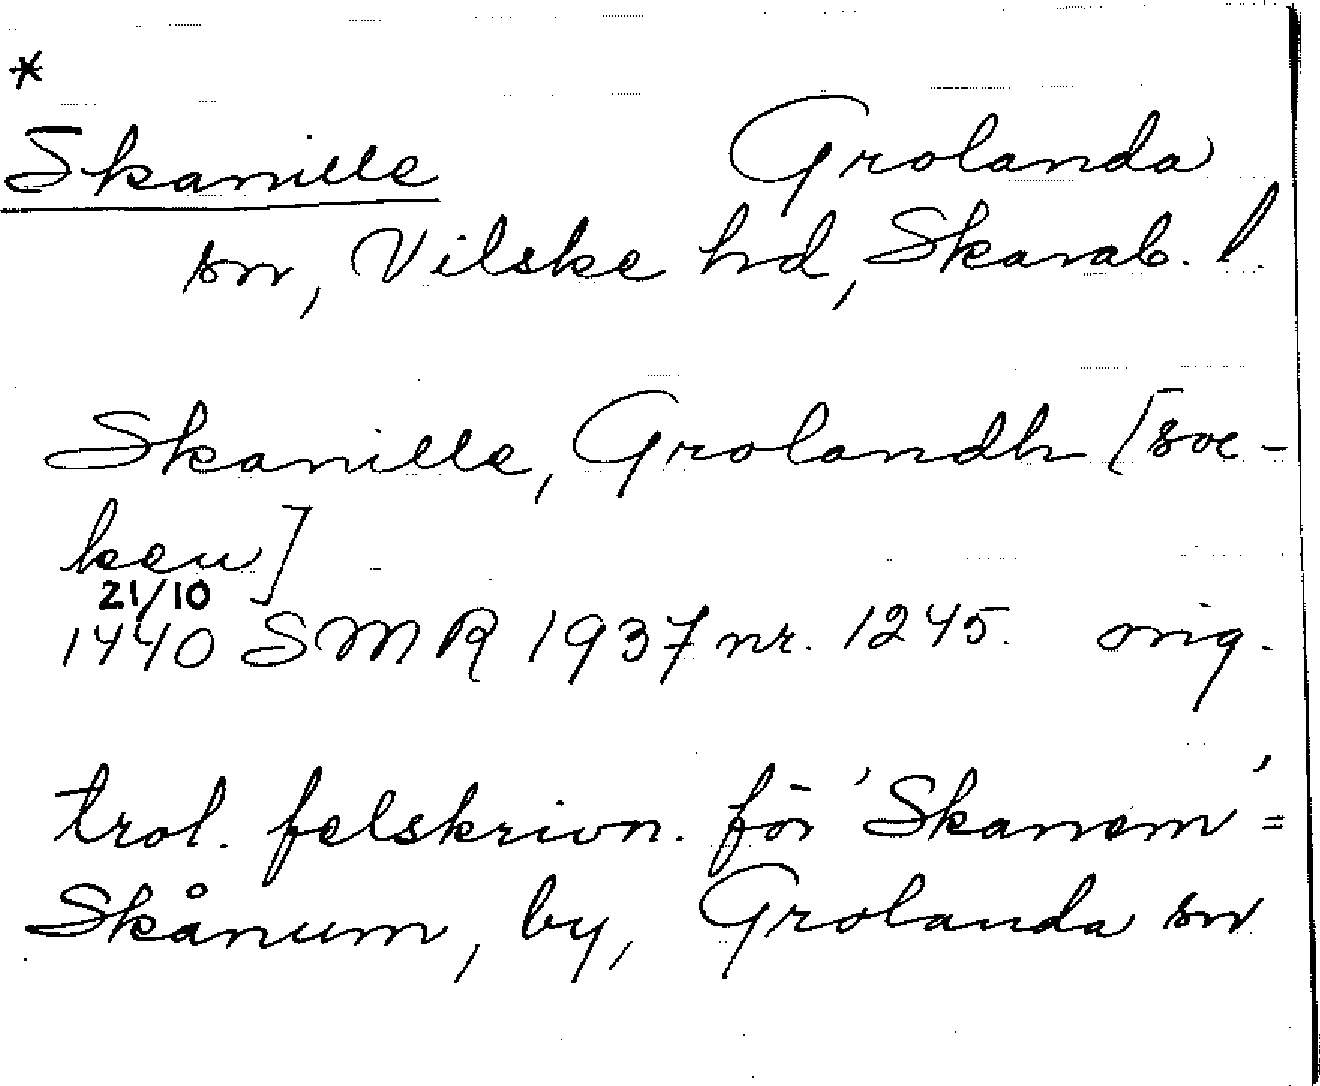 *
Skanille Grolanda
sn, Vilske hd, Skarab. l.
Skanille, Grolandh [soc-
ken]
21/10
1440 SMR 1937 nr. 1245. orig.
trol. felskrivn. för 'Skanem' =
Skånum, by, Grolanda sn